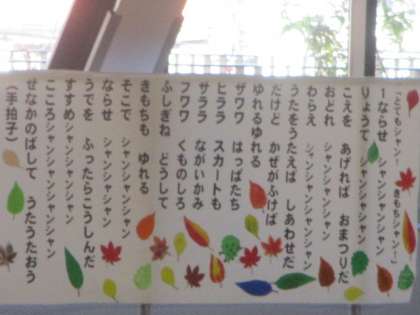 「とてもシャン！　きもちシャン！」
1ならせ　シャンシャンシャン
りょうて　シャンシャンシャン
こえを　あげれば　おまつりだ
おどれ　シャンシャンシャン
わらえ　シャンシャンシャン
うたをうたえば　しあわせだ
だけど　かぜがふけば
ゆれるゆれる
ザワワ　はっぱたち
ヒララ　スカートも
サララ　ながいかみ
フワワ　くものしろ
ふしぎね　どうして
きもちも　ゆれる
そこで　シャンシャンシャン
ならせ　シャンシャンシャン
うでを　ふったらこうしんだ
すすめ シャンシャンシャン
こころシャンシャンシャン
せなかのばして　うたうたおう
（手拍子）